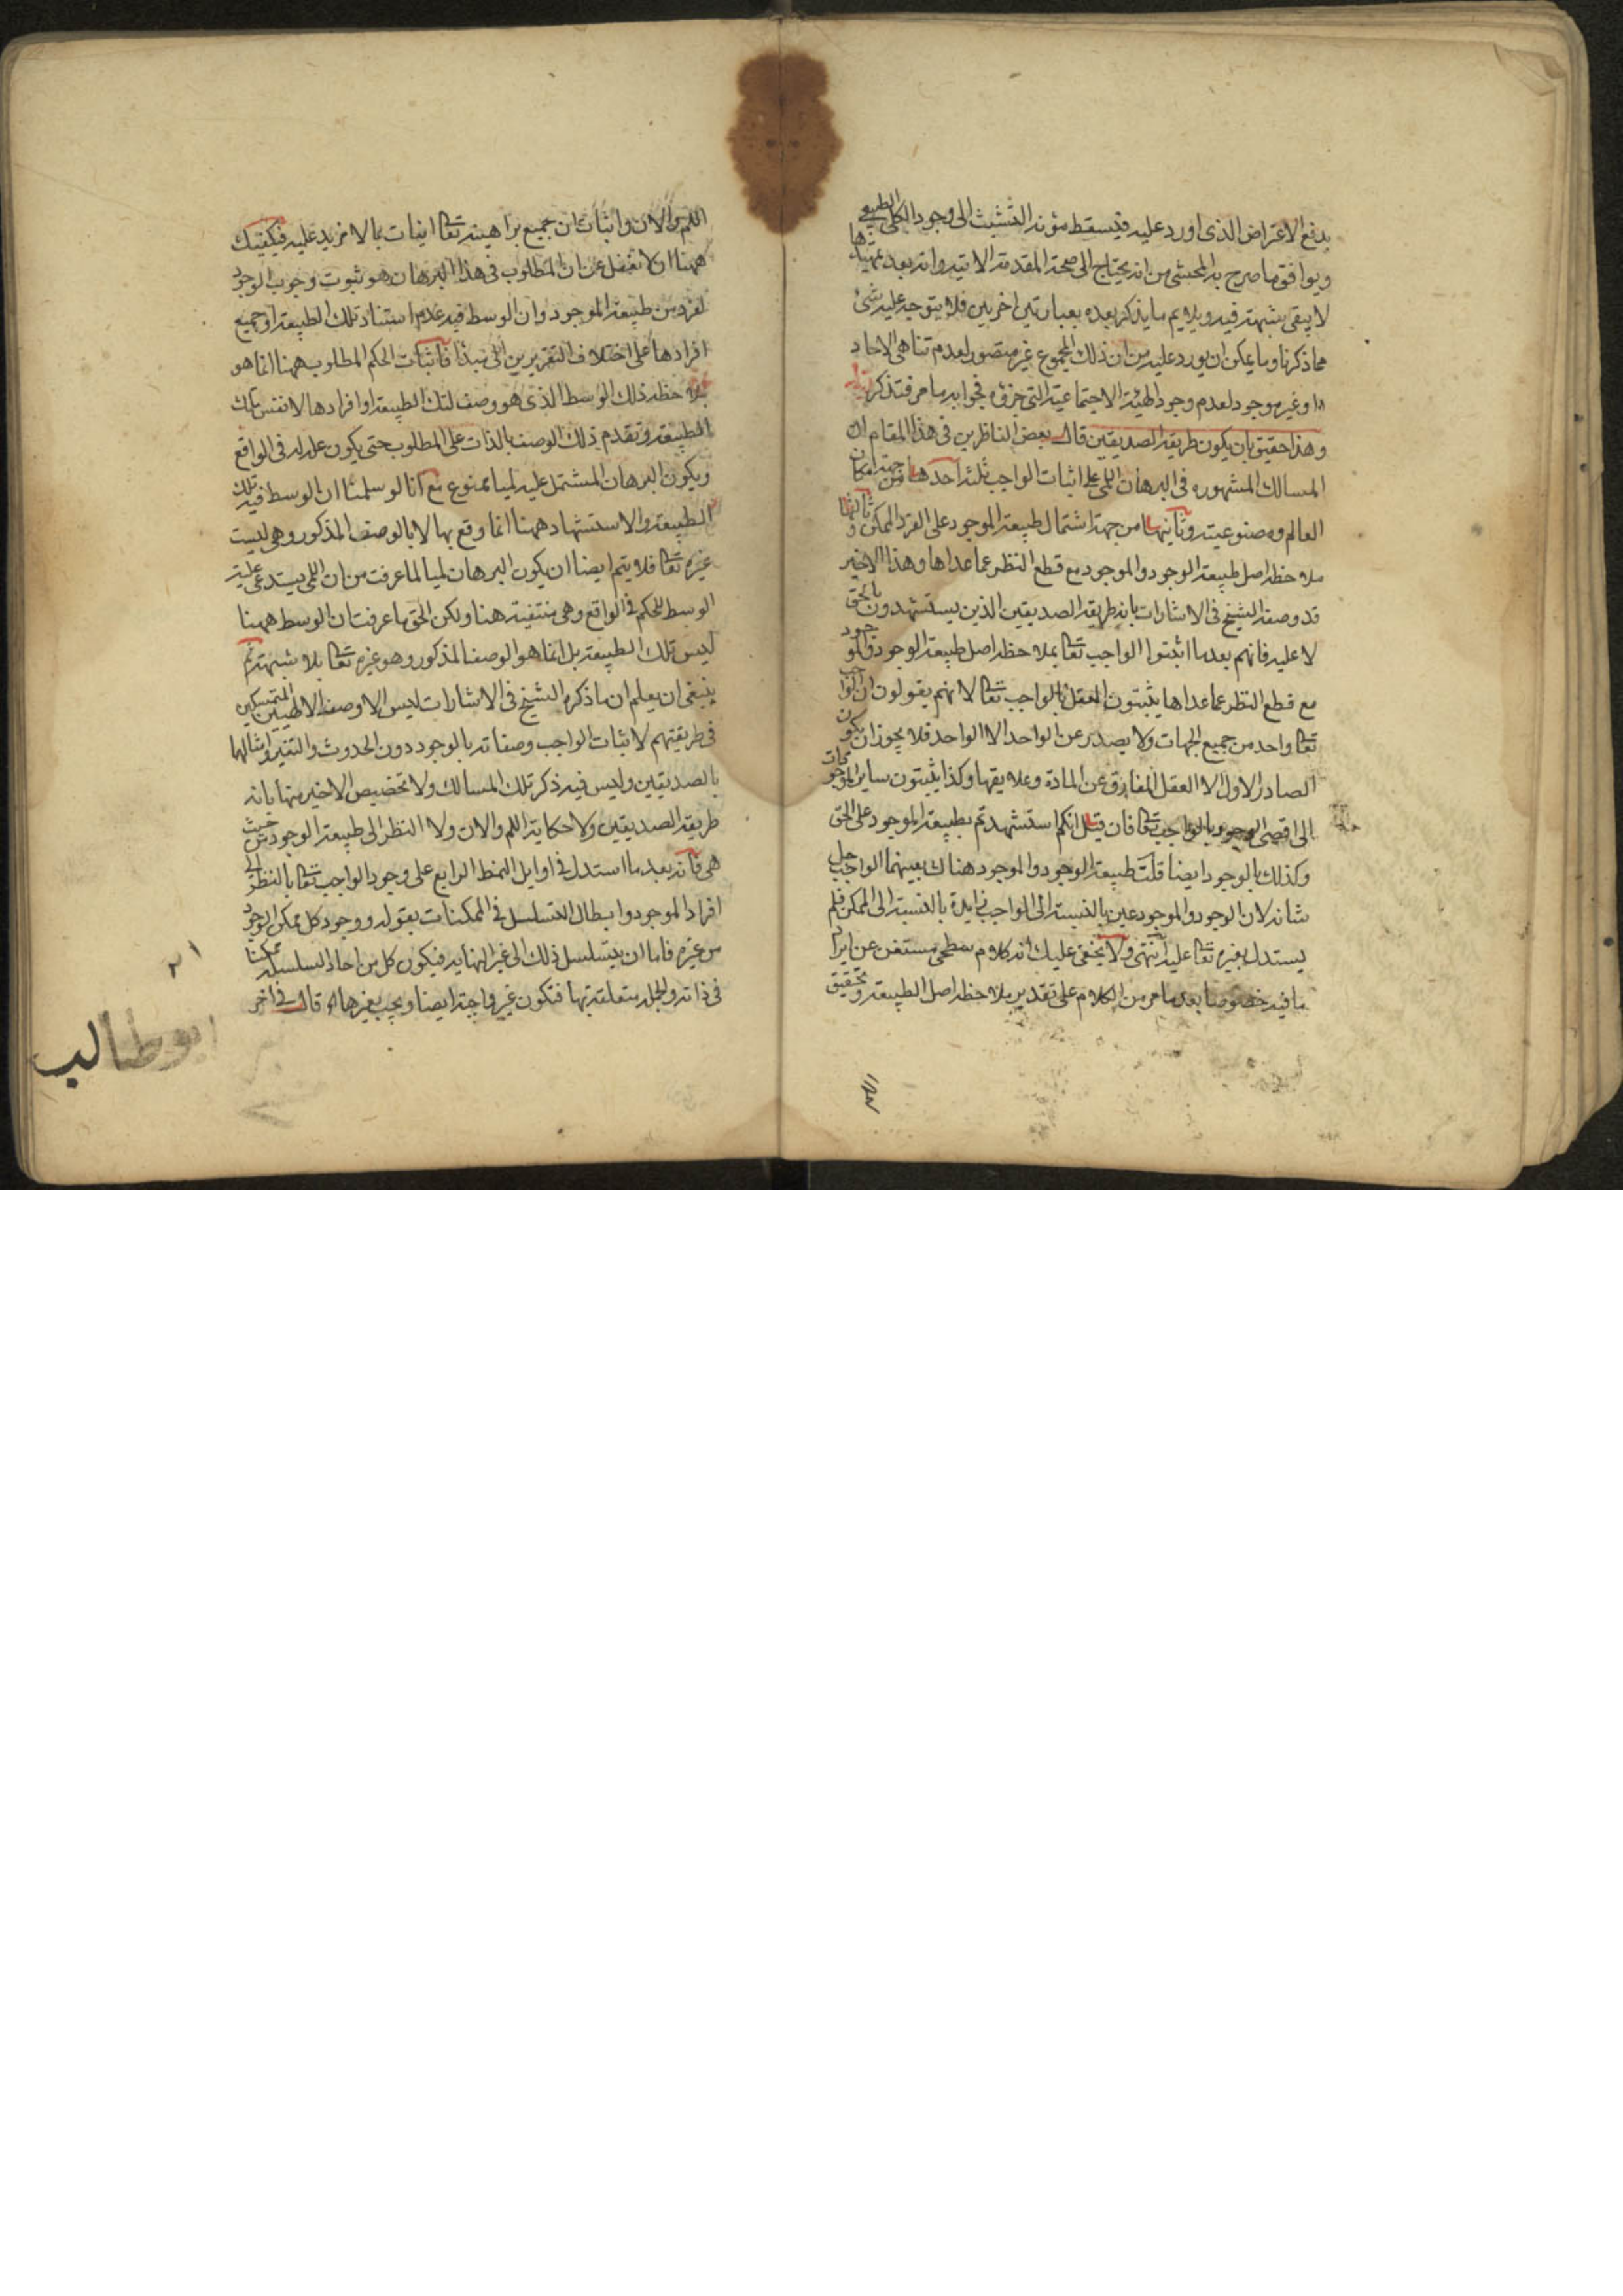 يدفع الاعتراض الذى اورد عليه فيسقط مؤنة التشبث الى وجود الكلى الطبيعى
ويوافق ما صرح به المحشى من انه يحتاج الى صحة المقدمة الاتية وانه بعد تمهيدها
لا يبقى شبهة فيه ويلايم ما يذكر بعده بعبارتين اخريين فلا يتوجه عليه شئ
مما ذكرنا وما يمكن ان يورد عليه من ان ذلك المجموع غير متصور لعدم تناهى الاحاد
او غير موجود لعدم وجود الهيئة الاجتماعية التى جزؤه فجوابه ما مر فتذكر
وهذا حقيق بان يكون طريقة الصديقين قال بعض الناظرين فى هذا المقام ان
المسالك المشهوره فى البرهان اللمى على اثبات الواجب ثلثة احدها من جهة امكان
العالم ومصنوعيته وثانيها من جهة اشتمال طبيعة الموجود على الفرد الممكن وثالثها
ملاحظة اصل طبيعة الوجود والموجود مع قطع النظر عما عداها وهذا الاخير
قد وصفه الشيخ فى الاشارات بانه طريقة الصديقين الذين يستشهدون بالحق
لا عليه فانهم بعد ما اثبتوا الواجب تعالى بملاحظة اصل طبيعة الوجود والموجود
مع قطع النظر عما عداها يثبتون العقل بالواجب تعالى لانهم يقولون ان الواجب
تعالى واحد من جميع الجهات ولا يصدر عن الواحد الا الواحد فلا يجوز ان يكون
الصادر الاول الا العقل المفارق عن المادة وعلايقها وكذا يثبتون ساير الموجودات
الى اقصى الوجود بالواجب تعالى فان قيل انكم استشهدتم بطبيعة الموجود على الحق
وكذلك بالوجود ايضا قلت طبيعة الوجود والموجود هناك بعينهما الواجب جل
شانه لان الوجود والموجود عين بالنسبة الى الواجب زايدة بالنسبة الى الممكن فلم
يستدل بغيره تعالى عليه انتهى ولا يخفى عليك انه كلام سطحى مستغن عن ايراد
ما فيه خصوصا بعد ما مر من الكلام على تقدير ملاحظة اصل الطبيعة وتحقيق
اللم والان واثبات ان جميع براهينه تعالى انيات بما لا مزيد عليه فيكفيك
ههنا ان لا تغفل عن ان المطلوب فى هذا البرهان هو ثبوت وجوب الوجود
لفرد من طبيعة الموجود وان الوسط فيه عدم استناد تلك الطبيعة او جميع
افرادها على اختلاف التقريرين الى مبدأ فاثبات الحكم المطلوب ههنا انما هو
بملاحظة ذلك الوسط الذى هو وصف لتلك الطبيعة او افرادها لا نفس تلك
الطبيعة وتقدم ذلك الوصف بالذات على المطلوب حتى يكون علة له فى الواقع
ويكون البرهان المشتمل عليه لميا ممنوع مع انا لو سلمنا ان الوسط فيه تلك
الطبيعة والاستشهاد ههنا انما وقع بها لا بالوصف المذكور وهى ليست
غيره تعالى فلا يتم ايضا ان يكون البرهان لميا لما عرفت من ان اللمى يستدعى علية
الوسط للحكم فى الواقع وهى منتفية هنا ولكن الحق ما عرفت ان الوسط ههنا
ليس تلك الطبيعة بل انما هو الوصف المذكور وهو غيره تعالى بلا شبهة ثم
ينبغى ان يعلم ان ما ذكره الشيخ فى الاشارات ليس الا وصف الالهيين المتمسكين
فى طريقتهم لاثبات الواجب وصفاته بالوجود دون الحدوث والتغير وامثالها
بالصديقين وليس فيه ذكر تلك المسالك ولا تخصيص الاخير منها بانه
طريقة الصديقين ولا حكاية اللم والان ولا النظر الى طبيعة الوجود من حيث
هى فانه بعد ما استدل فى اوايل النمط الرابع على وجود الواجب تعالى بالنظر الى
افراد الموجود وابطال التسلسل فى الممكنات بقوله ووجود كل ممكن الوجود
من غيره فاما ان يتسلسل ذلك الى غير النهاية فيكون كل من احاد السلسلة ممكنا
فى ذاته والجملة متعلقة بها فتكون غير واجبة ايضا ويجب بغيرها الخ قال فى اخر
ابو طالب